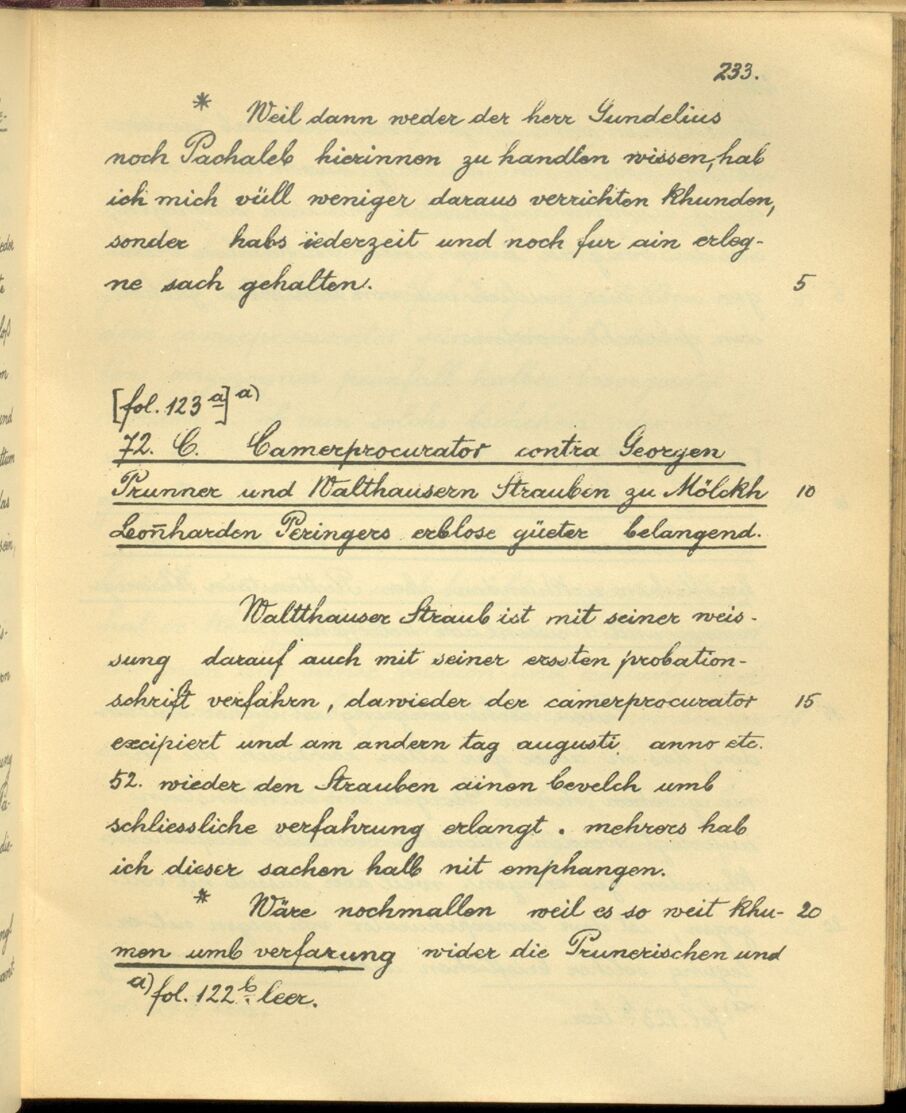 233.
* Weil dann weder der herr Gundelius
noch Pachaleb hierinnen zu handlen wissen, hab
ich mich vüll weniger daraus verrichten khunden,
sonder habs iederzeit und noch fur ain erleg-
ne sach gehalten. 5
[fol. 123 a] a)
72. C. Camerprocurator contra Georgen
Prunner und Walthausern Strauben zu Mölckh 10
Leon̄harden Peringers erblose güeter belangend.
Waltthauser Straub ist mit seiner weis-
sung darauf auch mit seiner erssten probation-
schrift verfahrn, dawieder der camerprocurator 15
excipiert und am andern tag augusti anno etc.
52. wieder den Strauben ainen bevelch umb
schliessliche verfahrung erlangt. mehrers hab
ich dieser sachen halb nit emphangen.
* Wäre nochmallen weil es so weit khu- 20
men umb verfarung wider die Prunerischen und
a) fol. 122 b. leer.